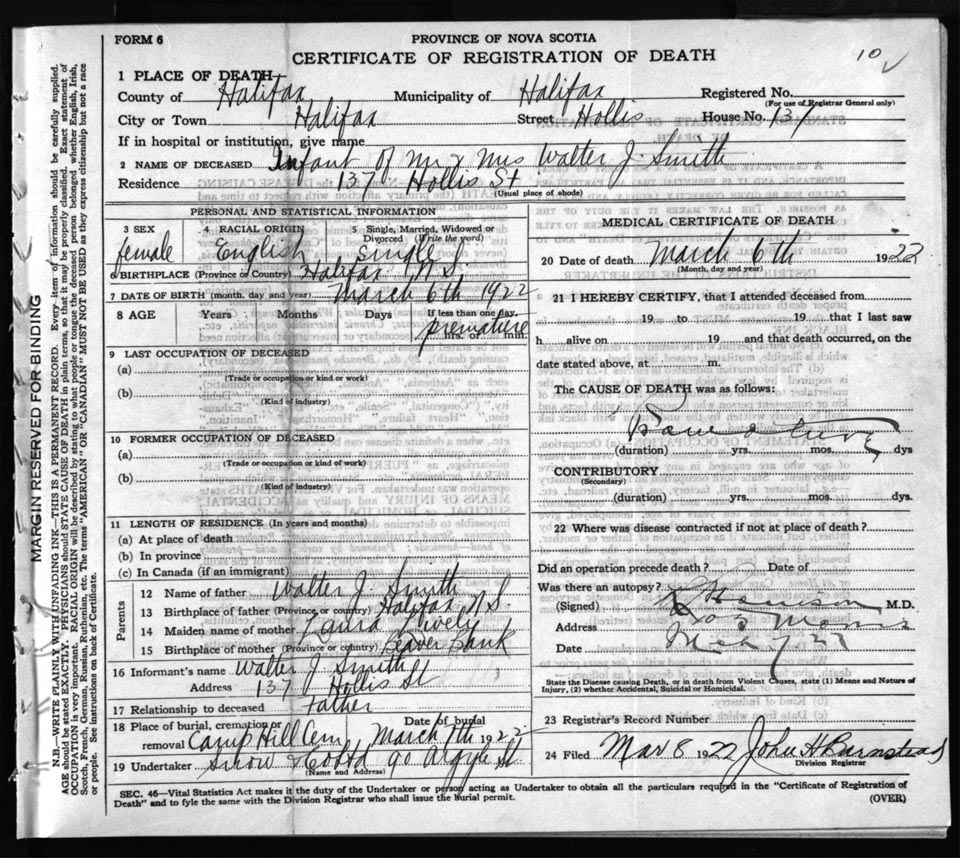 FORM 6
PROVINCE OF NOVA SCOTIA
CERTIFICATE OF REGISTRATION OF DEATH
10 ✓
1 PLACE OF DEATH
County of Halifax Municipality of Halifax Registered No.
(For use of Registrar General only)
City or Town Halifax Street Hollis House No. 137
If in hospital or institution, give name
2 NAME OF DECEASED Infant of Mr & Mrs Walter J. Smith
Residence 137 Hollis St
(Usual place of abode)
PERSONAL AND STATISTICAL INFORMATION
3 SEX 4 RACIAL ORIGIN 5 Single, Married, Widowed or Divorced (Write the word)
female English Single S.
6 BIRTHPLACE (Province or Country) Halifax N.S.
7 DATE OF BIRTH (month, day and year) March 6th 1922
8 AGE Years Months Days If less one day,
premature
hrs. or min.
9 LAST OCCUPATION OF DECEASED
(a)
(Trade or occupation or kind of work)
(b)
(Kind of industry)
10 FORMER OCCUPATION OF DECEASED
(a)
(Trade or occupation or kind of work)
(b)
(Kind of industry)
11 LENGTH OF RESIDENCE (In years and months)
(a) At place of death
(b) In province
(c) In Canada (if an immigrant)
Parents
12 Name of father Walter J. Smith
13 Birthplace of father (Province or country) Halifax N S
14 Maiden name of mother Laura Lively
15 Birthplace of mother (Province or country) Beaver Bank
16 Informant's name Walter J. Smith
Address 137 Hollis St
17 Relationship to deceased Father
18 Place of burial, cremation or removal Camp Hill Cem Date of burial March 7th 1922
19 Undertaker Snow & Co Ltd 90 Argyle St.
(Name and Address)
MEDICAL CERTIFICATE OF DEATH
20 Date of death March 6th 1922
(Month, day and year)
21 I HEREBY CERTIFY, that I attended deceased from
19 to 19 that I last saw
h alive on 19 and that death occurred, on the
date stated above, at m.
The CAUSE OF DEATH was as follows:
(duration) yrs. mos. dys
CONTRIBUTORY
(Secondary)
(duration) yrs. mos. dys.
22 Where was disease contracted if not at place of death?
Did an operation precede death? Date of
Was there an autopsy?
(Signed) M.D.
Address Morris
Date Mch 7 22
State the Disease causing Death, or in death from Violent Causes, state (1) Means and Nature of Injury, (2) whether Accidental, Suicidal or Homicidal.
23 Registrar's Record Number
24 Filed Mar 8 1922 John H Barnstead
Division Registrar
SEC. 46—Vital Statistics Act makes it the duty of the Undertaker or person acting as Undertaker to obtain all the particulars required in the "Certificate of Registration of
Death" and to fyle the same with the Division Registrar who shall issue the burial permit. (OVER)
MARGIN RESERVED FOR BINDING
N.B.—WRITE PLAINLY WITH UNFADING INK—THIS IS A PERMANENT RECORD. Every item of information should be carefully supplied.
AGE should be stated EXACTLY. PHYSICIANS should STATE CAUSE OF DEATH in plain terms, so that it may be properly classified. Exact statement of
OCCUPATION is very important. RACIAL ORIGIN will be described by stating to what people or tongue the deceased person belonged whether English, Irish,
Scotch, French, German, Russian, Ruthenian, etc. The terms "AMERICAN" OR "CANADIAN" MUST NOT BE USED as they express citizenship but not a race
or people. See instructions on back of Certificate.